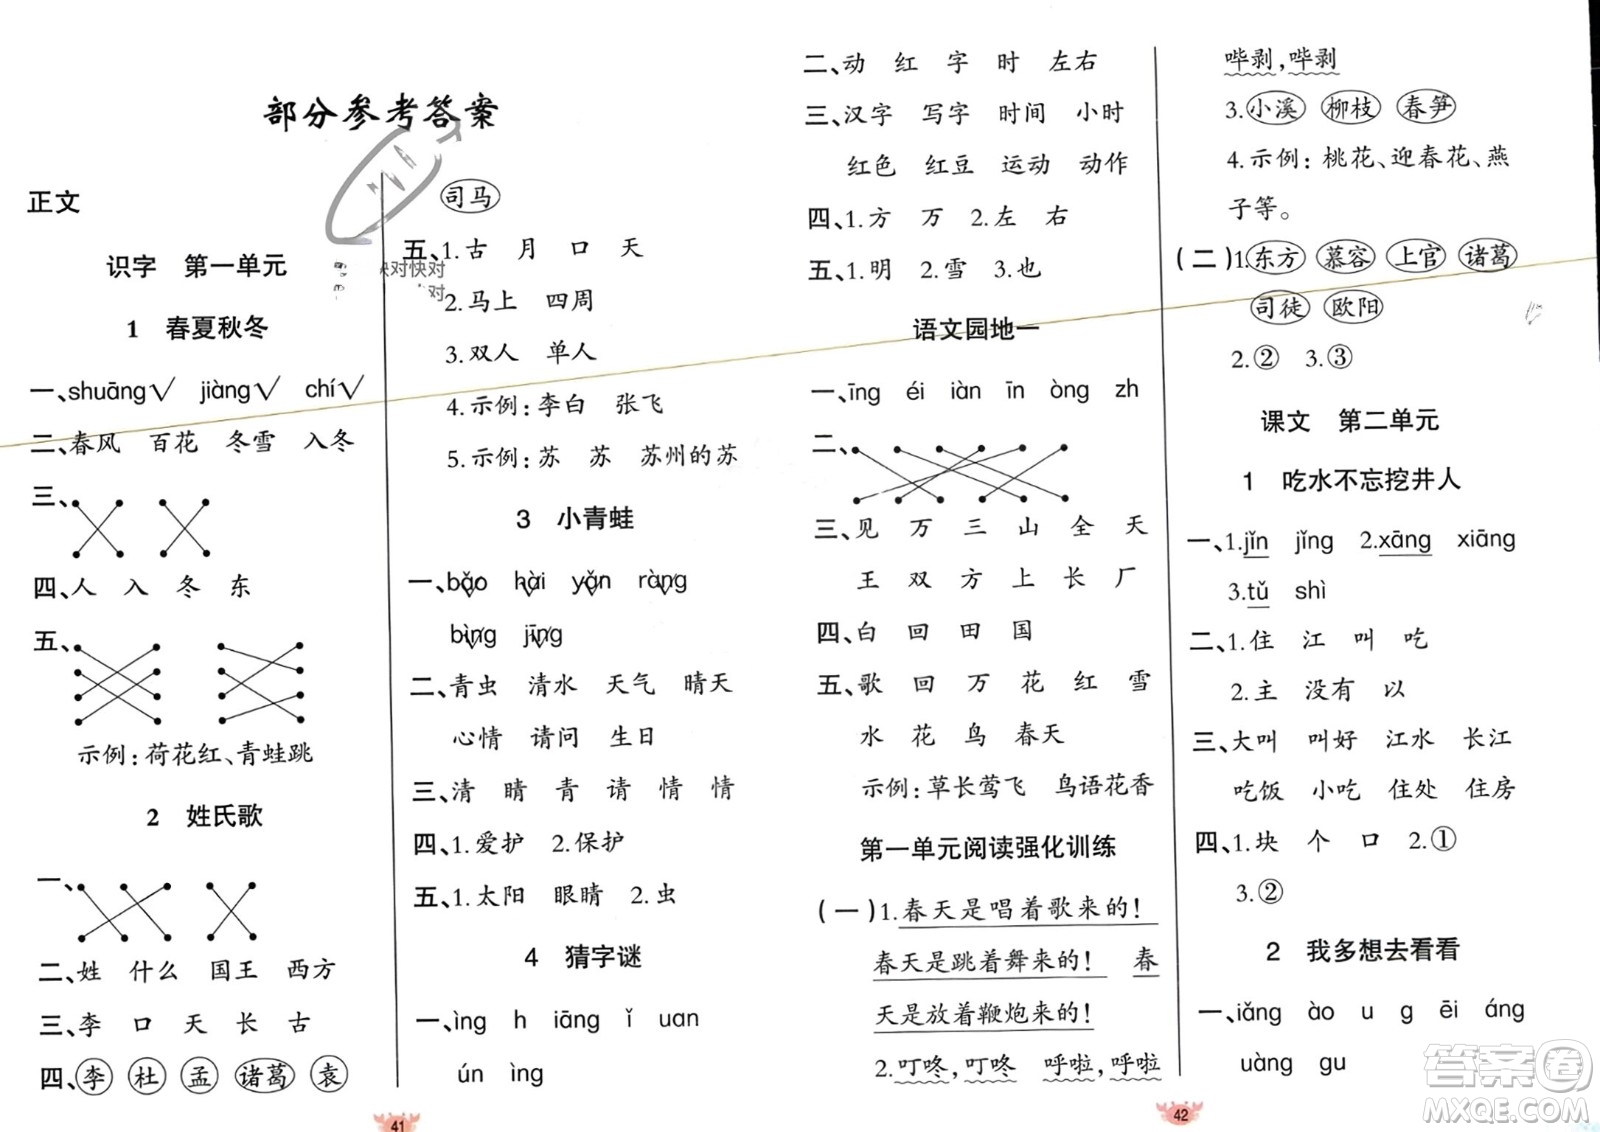 部分参考答案
正文
识字 第一单元
1 春夏秋冬
一、shuāng√ jiàng√ chí√
二、春风 百花 冬雪 入冬
三、
四、人 入 冬 东
五、
示例：荷花红、青蛙跳
2 姓氏歌
一、
二、姓 什么 国王 西方
三、李 口 天 长 古
四、李 杜 孟 诸葛 袁
41
司马
五、1.古 月 口 天
对快对
对
2.马上 四周
3.双人 单人
4.示例：李白 张飞
5.示例：苏 苏 苏州的苏
3 小青蛙
一、bǎo hài yǎn ràng
bìng jīng
二、青虫 清水 天气 晴天
心情 请问 生日
三、清 晴 青 请 情 情
四、1.爱护 2.保护
五、1.太阳 眼睛 2.虫
4 猜字谜
一、ìng h iāng ǐ uan
ún ìng
二、动 红 字 时 左右
三、汉字 写字 时间 小时
红色 红豆 运动 动作
四、1.方 万 2.左 右
五、1.明 2.雪 3.也
语文园地一
一、īng éi iàn īn òng zh
二、
三、见 万 三 山 全 天
王 双 方 上 长 厂
四、白 回 田 国
五、歌 回 万 花 红 雪
水 花 鸟 春天
示例：草长莺飞 鸟语花香
第一单元阅读强化训练
（一）1.春天是唱着歌来的！
春天是跳着舞来的！ 春
天是放着鞭炮来的！
2.叮咚，叮咚 呼啦，呼啦
42
哔剥，哔剥
3.小溪 柳枝 春笋
4.示例：桃花、迎春花、燕
子等。
（二）1.东方 慕容 上官 诸葛
司徒 欧阳
2.② 3.③
课文 第二单元
1 吃水不忘挖井人
一、1.jǐn jǐng 2.xāng xiāng
3.tǔ shì
二、1.住 江 叫 吃
2.主 没有 以
三、大叫 叫好 江水 长江
吃饭 小吃 住处 住房
四、1.块 个 口 2.①
3.②
2 我多想去看看
一、iǎng ào u g ēi áng
uàng gu
答案圈
MXQE.COM